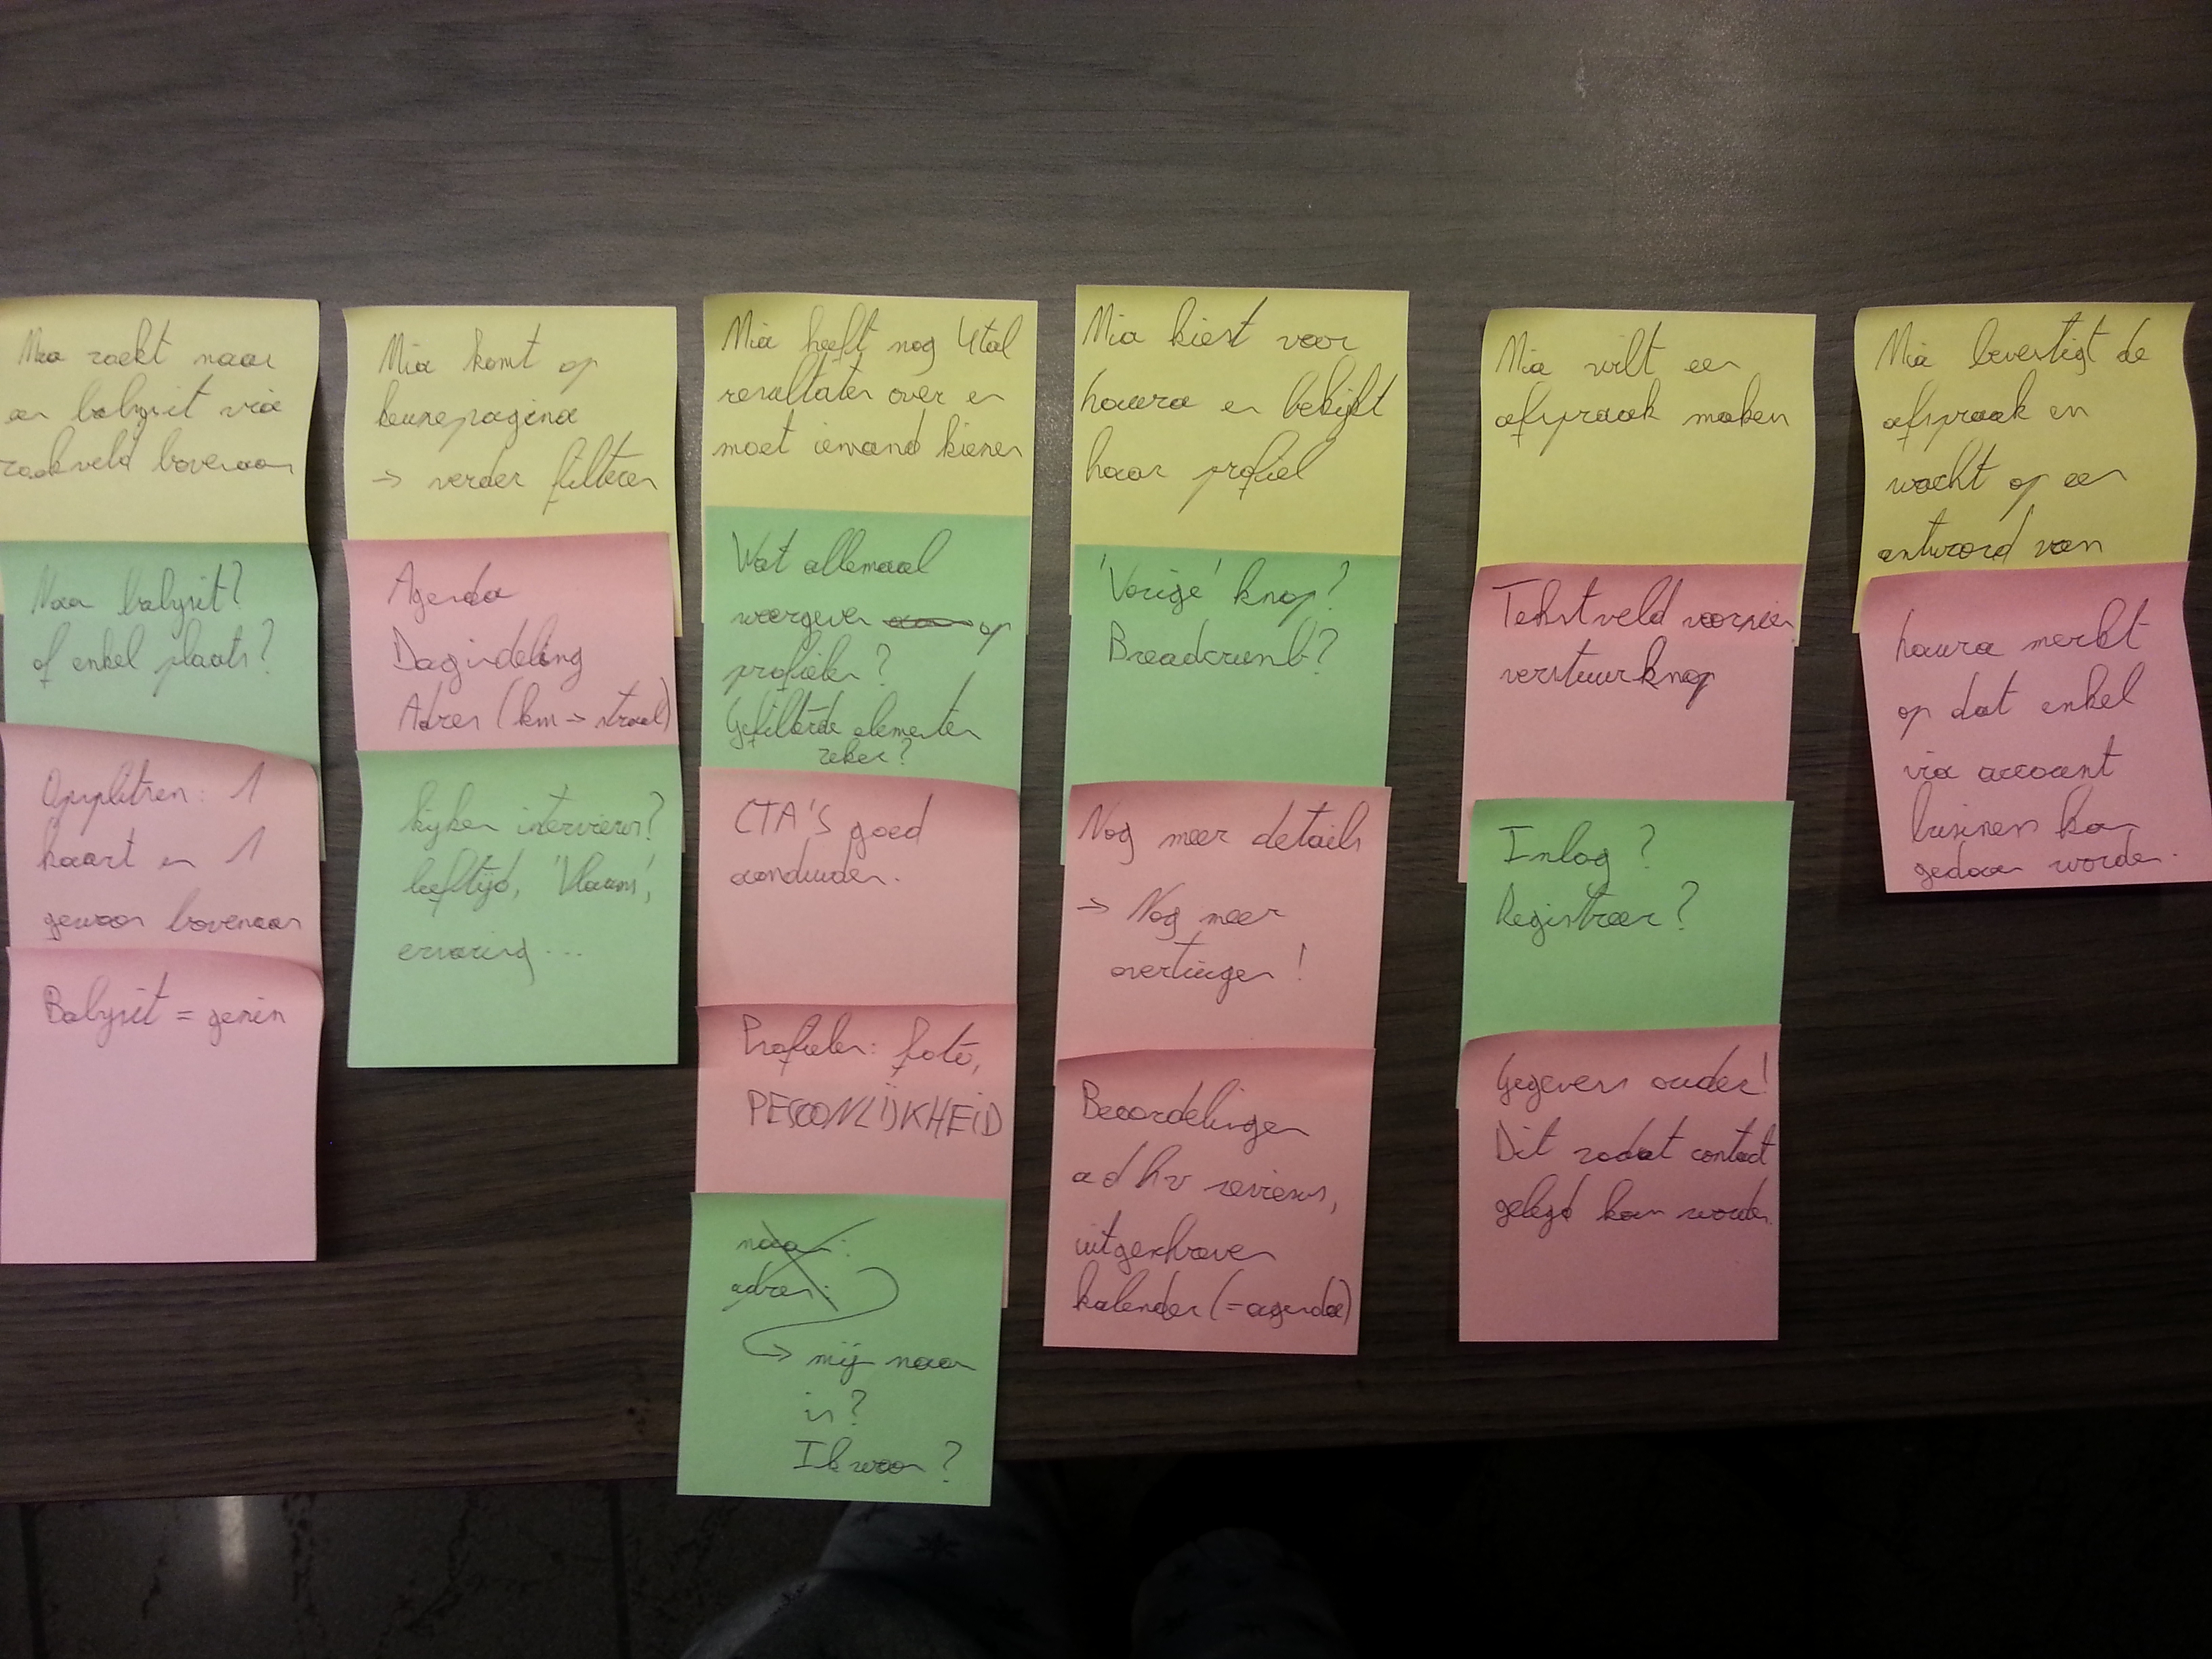 Mia zoekt naar
een babysit via
zoekveld bovenaan
Naar babysit?
of enkel plaats?
Opsplitsen: 1
kaart en 1
gewoon bovenaan
Babysit = gezin
Mia komt op
keuzepagina
→ verder filteren
Agenda
Dagindeling
Adres (km → straal)
kijken interviews?
leeftijd, 'Vlaams',
ervaring...
Mia heeft nog 4tal
resultaten over en
moet iemand kiezen
Wat allemaal
weergeven op
profielen?
Gefilterde elementen
zeker?
CTA'S goed
aanduiden.
Profielen: foto,
PERSOONLIJKHEID
naam:
adres:
→ mijn naam
is?
Ik woon?
Mia kiest voor
haura en bekijkt
haar profiel
'Vorige' knop?
Breadcrumb?
Nog meer details
→ Nog meer
overtuigen!
Beoordelingen
adhv reviews,
uitgeschreven
kalender (=agenda)
Mia wilt een
afspraak maken
Tekstveld voorzien
verstuurknop
Inlog?
Registreer?
Gegevens ouder!
Dit zodat contact
gelegd kan worden.
Mia bevestigt de
afspraak en
wacht op een
antwoord van
haura merkt
op dat enkel
via account
business kan
gedaan worden.